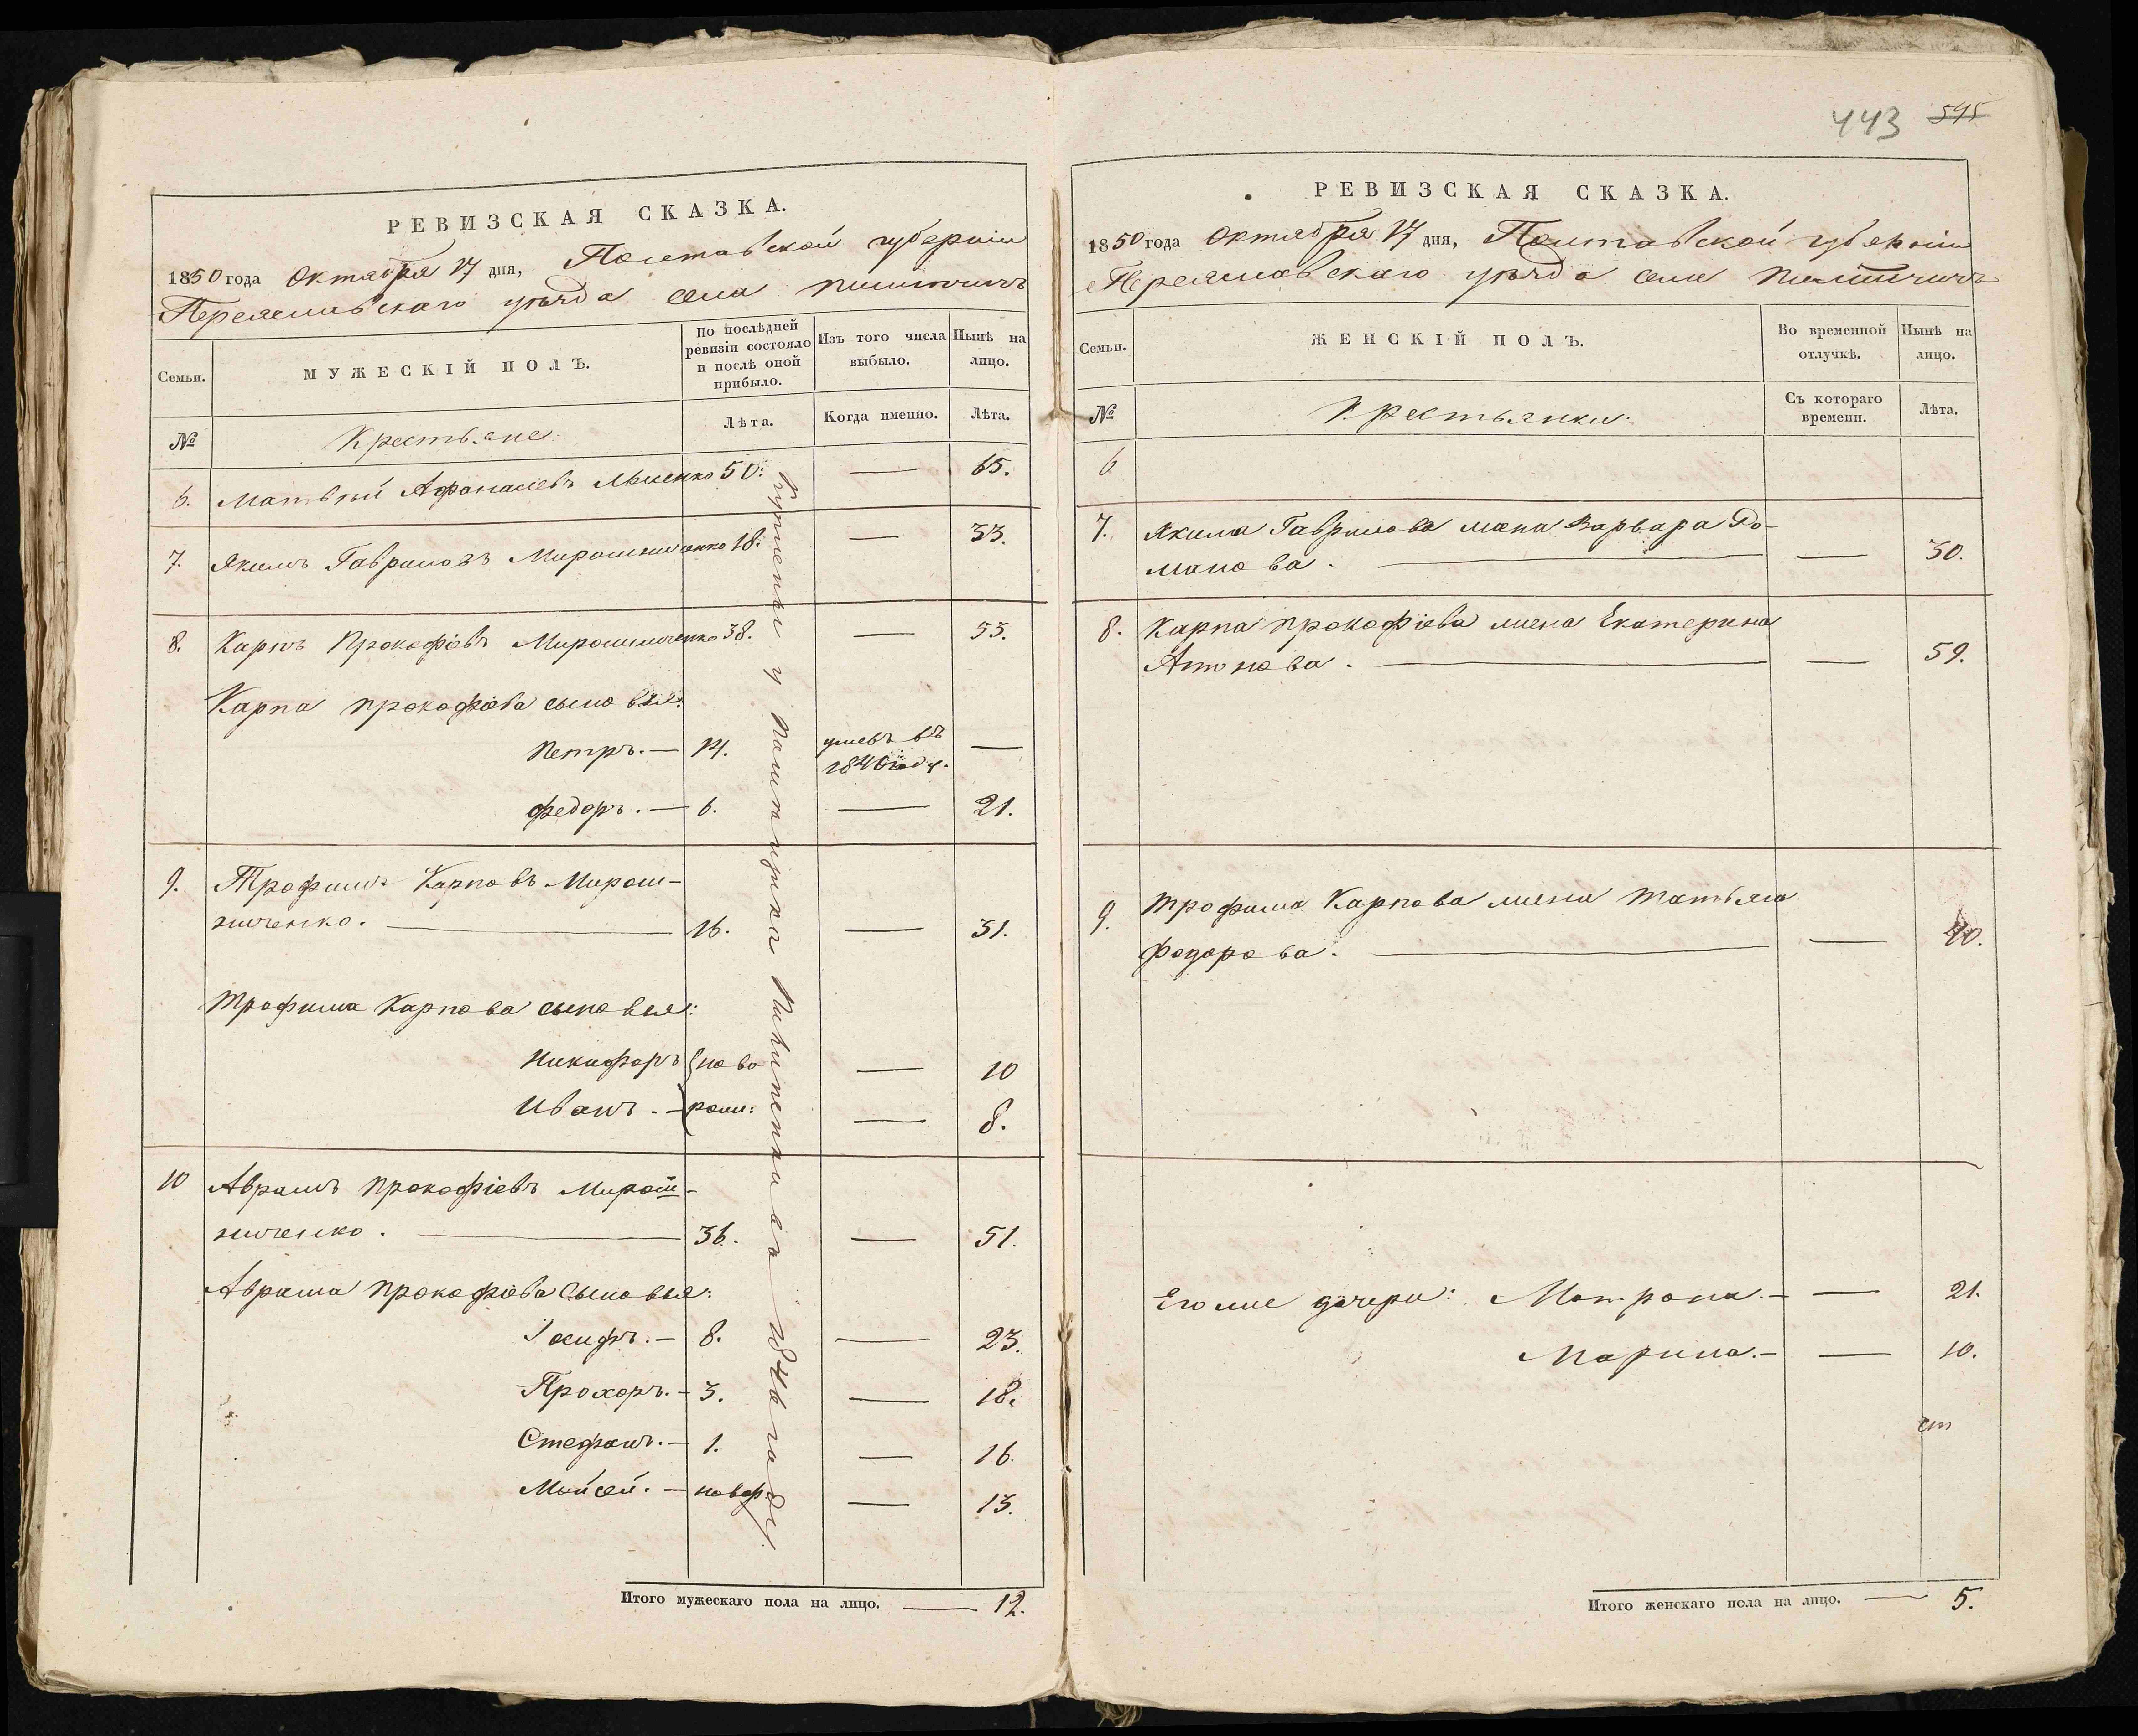 РЕВИЗСКАЯ СКАЗКА.
1850 года Октября 17 дня, Полтавской губернии
Переяславскаго уѣзда села
Семьи.
МУЖЕСКІЙ ПОЛЪ.
По послѣдней ревизіи состояло и послѣ оной прибыло.
Изъ того числа выбыло.
Нынѣ на лицо.
№
Крестьяне.
Лѣта.
Когда именно.
Лѣта.
6. Матвѣй Афанасіевъ 50. — 65.
7. Якимъ Гавриловъ Мирошниченко 18. — 33.
8. Карпъ Прокофіевъ Мирошниченко 38. — 53.
Карпа Прокофіева сыновья:
Петръ. — 14. умеръ въ —
1846 году.
Федоръ. — 6. — 21.
9. Трофимъ Карповъ Мирош-
ниченко. — 16. — 31.
Трофима Карпова сыновья:
Никифоръ ново — 10
Иванъ. — рожд: — 8.
10 Аврамъ Прокофіевъ Мирош-
ниченко. — 36. — 51.
Аврама Прокофіева сыновья:
Іосифъ. — 8. — 23.
Прохоръ. — 3. — 18.
Стефанъ. — 1. — 16.
Мойсей. — новор. — 13.
Куплены у въ 1846 году.
Итого мужескаго пола на лицо. — 12.
443 545
РЕВИЗСКАЯ СКАЗКА.
1850 года Октября 17 дня, Полтавской губерніи
Переяславскаго уѣзда села
Семьи.
ЖЕНСКІЙ ПОЛЪ.
Во временной отлучкѣ.
Нынѣ на лицо.
№
Крестьянки.
Съ котораго времени.
Лѣта.
6
7. Якима Гаврилова жена Варвара Ро-
манова. — — 30.
8. Карпа Прокофіева жена Екатерина
Антонова. — — 59.
9. Трофима Карпова жена Татьяна
Федорова. — — 40.
Его же дочери: Матрона. — — 21.
Марина. — — 10.
Итого женскаго пола на лицо. — 5.